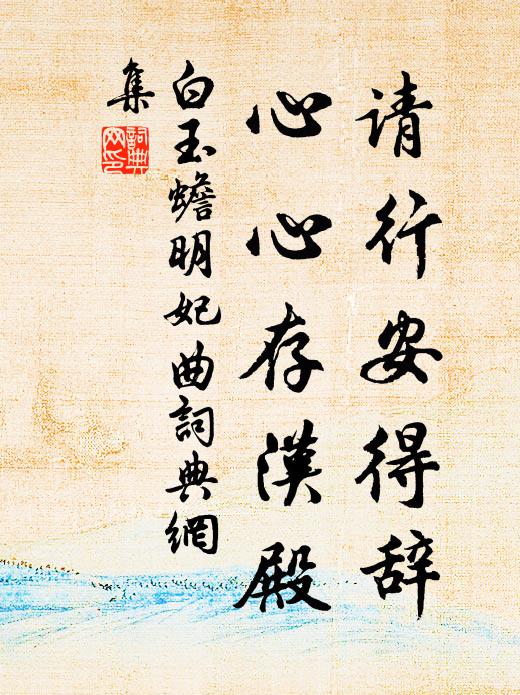 请行安得辞
心心存漢殿
白玉蟾明妃曲詞典網
集
詞典
网印